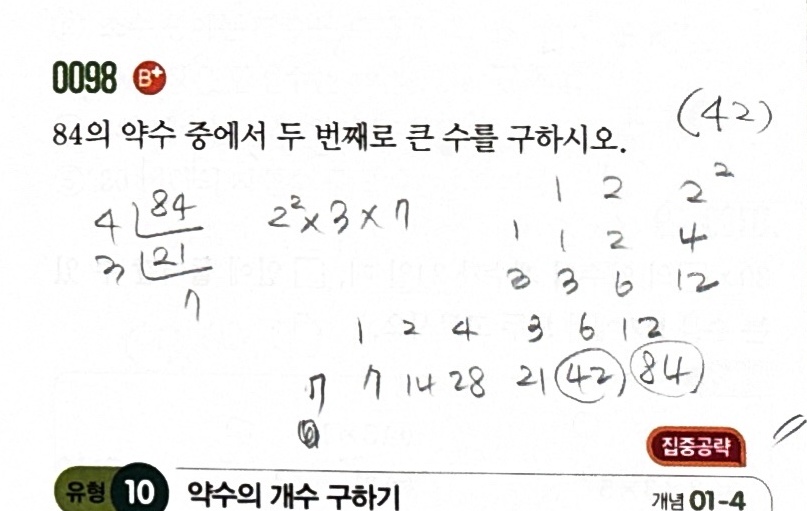 0098 B+
(42)
84의 약수 중에서 두 번째로 큰 수를 구하시오.
4 84
3 21
7
2²×3×7
1 2 2²
1 1 2 4
3 3 6 12
1 2 4 3 6 12
7 7 14 28 21 42 84
집중공략
유형 10 약수의 개수 구하기 개념 01-4